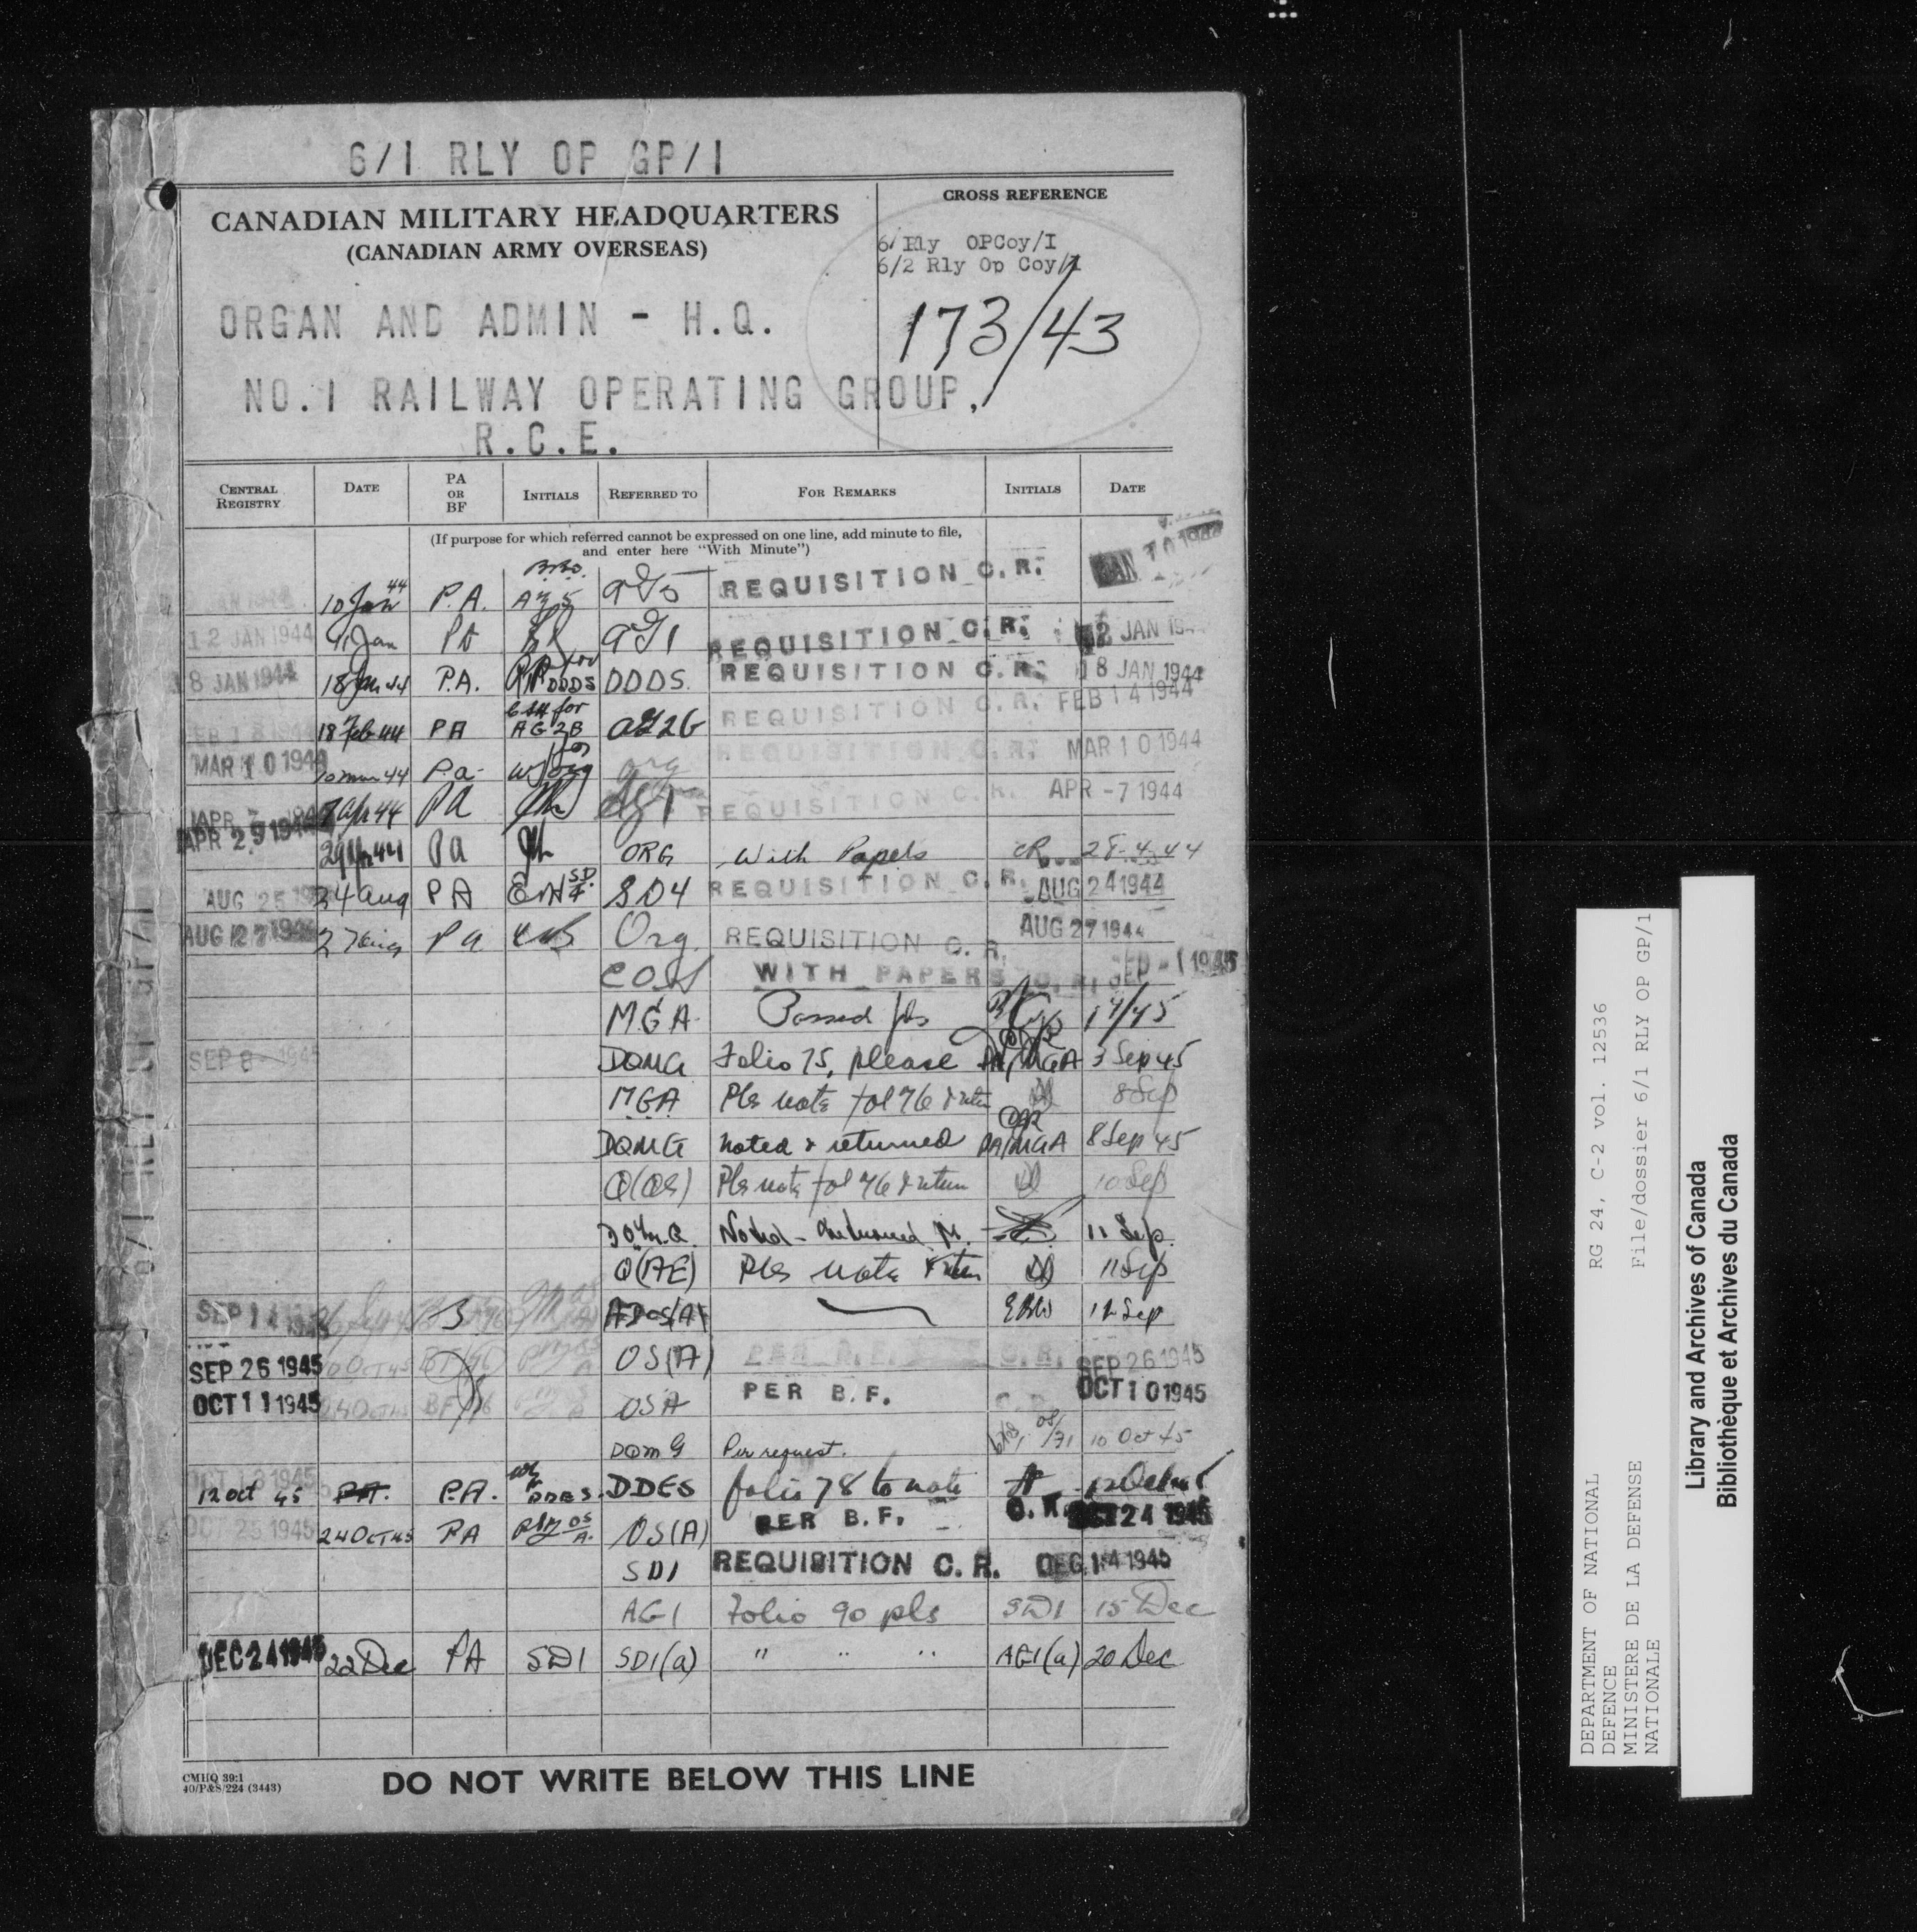 6/1 RLY OP GP/1
CANADIAN MILITARY HEADQUARTERS
(CANADIAN ARMY OVERSEAS)
CROSS REFERENCE
6/ Rly OPCoy/I
6/2 Rly Op Coy/1
173/43
ORGAN AND ADMIN - H.Q.
NO.1 RAILWAY OPERATING GROUP,
R.C.E.
CENTRAL REGISTRY DATE PA OR BF INITIALS REFERRED TO FOR REMARKS INITIALS DATE
(If purpose for which referred cannot be expressed on one line, add minute to file,
and enter here "With Minute")
10 Jan 44 P.A. AG 5 REQUISITION C.R. JAN 10 1944
12 JAN 1944 PA AG1 REQUISITION C.R. 12 JAN
18 JAN 1944 18 Jan 44 P.A. for DDDS DDDS. REQUISITION C.R. 18 JAN 1944
18 Feb 44 PA for AG2B AG2B REQUISITION C.R. FEB 14 1944
MAR 10 194 10 Mar 44 P.a. for org org REQUISITION C.R. MAR 10 1944
APR 7 7 Apr 44 PA AG1 REQUISITION C.R. APR -7 1944
APR 29 194 29 Apr 44 Pa ORG With Papers CR 28.4.44
AUG 25 24 Aug PA SD4 SD4 REQUISITION C.R. AUG 24 1944
AUG 27 194 27 Aug Pa Org. REQUISITION C.R. AUG 27 1944
COS WITH PAPERS C.R. SEP -1 1945
MGA Passed pls 1/9/45
SEP 8 - 1945 DQMG Folio 75, please PA/MGA 3 Sep 45
MGA Pls note fol 76 & return 8 Sep
DQMG noted & returned PA/MGA 8 Sep 45
Q(OS) Pls note fol 76 & return 10 Sep
D.Q.M.G. Noted - & returned 11 Sep.
Q(AE) Pls note & return 11 Sep
SEP 14 ADOS(A) EBW 12 Sep
SEP 26 1945 OS(A) PER B.F. C.R. SEP 26 1945
OCT 11 1945 24 Oct 45 BF 76 OSA PER B.F. OCT 10 1945
DQMG Per request. 10 Oct 45
OCT 13 1945
12 Oct 45 PA. P.A. DDES. DDES folio 78 to note
OCT 25 1945 24 Oct 45 PA OS(A) PER B.F. C.R. OCT 24 1945
SD1 REQUISITION C.R. DEC 14 1945
AG1 Folio 90 pls SD1 15 Dec
DEC 24 1945 22 Dec PA SD1 SD1(a) " " " AG1(a) 20 Dec
CMHQ 39:1
40/P&S/224 (3443)
DO NOT WRITE BELOW THIS LINE
DEPARTMENT OF NATIONAL DEFENCE
MINISTERE DE LA DEFENSE NATIONALE
RG 24, C-2 vol. 12536
File/dossier 6/1 RLY OP GP/1
Library and Archives of Canada
Bibliothèque et Archives du Canada